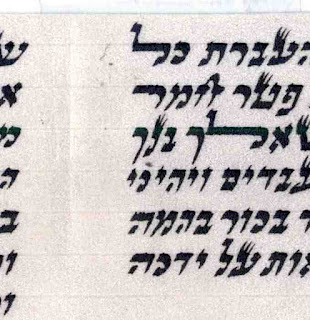 העברת כל
פטר חמר
שאלך בנך
עבדים ויהי כי
בכור בהמה
אות על ידכה